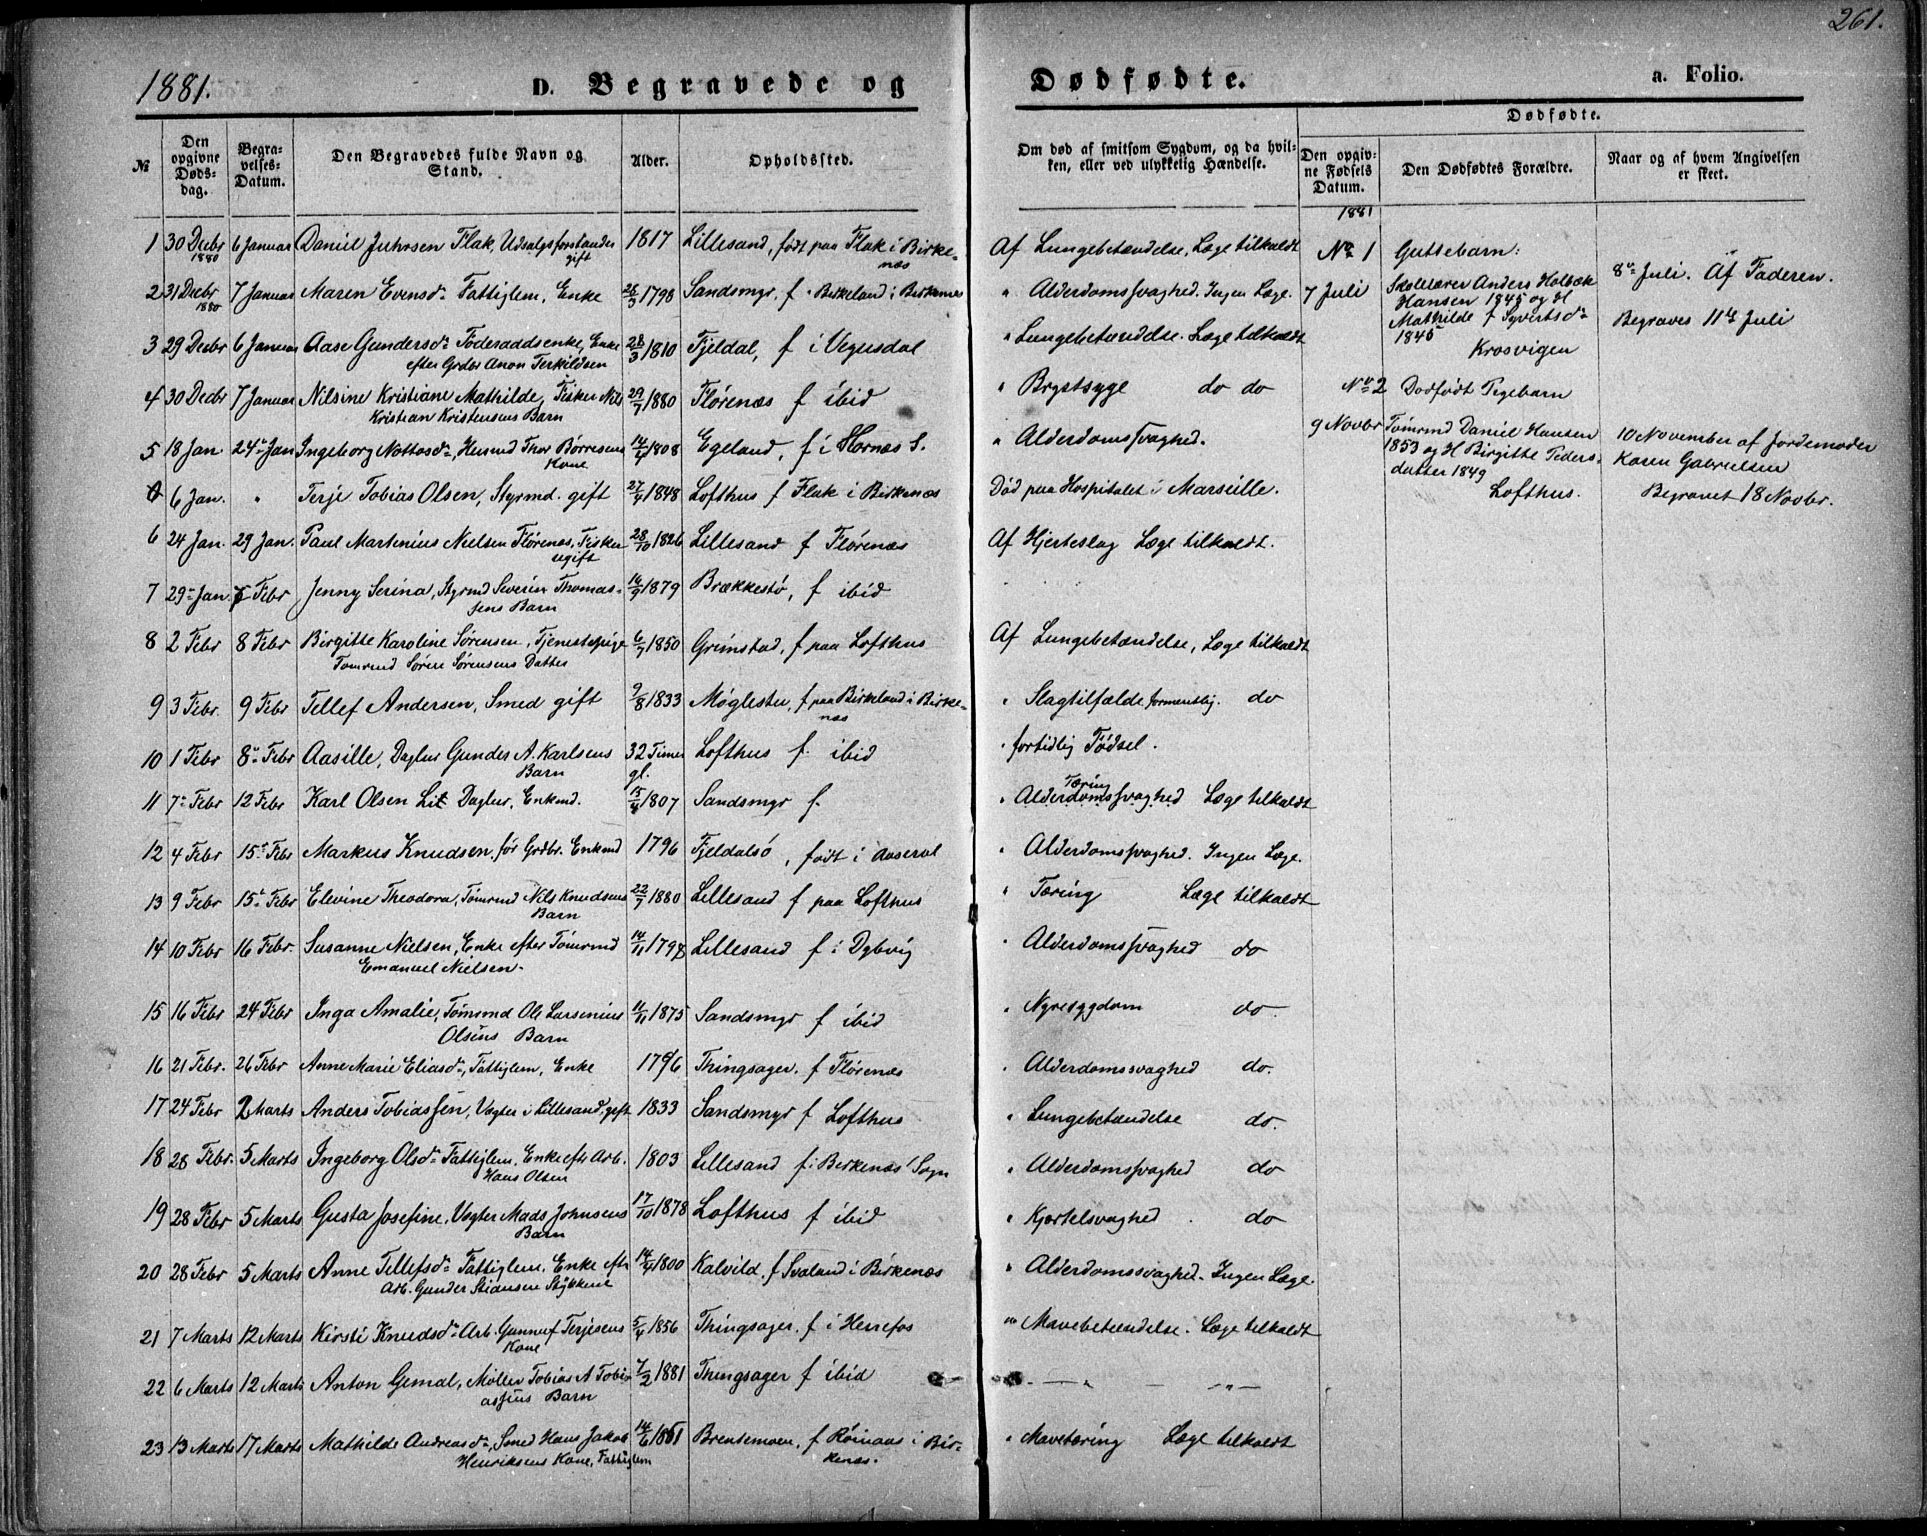 261.
1881.
D. Begravede og Dødfødte.
a. Folio.
№
Den opgivne Døds-dag.
Begra-velses-Datum.
Den Begravedes fulde Navn og Stand.
Alder.
Opholdssted.
Om død af smitsom Sygdom, og da hvil-ken, eller ved ulykkelig Hændelse.
Dødfødte.
Den opgiv-ne Fødsels Datum.
Den Dødfødtes Forældre.
Naar og af hvem Angivelsen er skeet.
1 30 Decbr 1880 6 Januar Daniel Juhrsen Flak, Udsalgsforstander gift 1817 Lillesand, født paa Flak i Birkenæs Af Lungebetændelse, Læge tilkaldt
2 31 Decbr 1880 7 Januar Maren Evensd. Fattiglem, Enke 1798 Sandsmyr, f. Birkeland i Birkenæs " Alderdomssvaghed. Ingen Læge.
3 29 Decbr 6 Januar Aase Gundersd. Føderaadsenke, Enke efter Grdbr Anon Terkildsen 28/3 1810 Fjeldal, f i Vegusdal " Lungebetændelse. Læge tilkaldt
4 30 Decbr 7 Januar Nilsine Kristiane Mathilde, Fisker Nils Kristian Kristensens Barn 29/7 1880 Flørenæs f ibid " Brystsyge do do
5 18 Jan 24 Jan Ingeborg Nottosd., Husmd Thor Børresens Kone 1808 Egeland, f i Hornæs S. " Alderdomssvaghed.
0 6 Jan. " Terje Tobias Olsen, Styrmd. gift 1848 Lofthus f Flak i Birkenæs Død paa Hospitalet i Marseille.
6 24 Jan. 29 Jan. Paul Martinius Nielsen Flørenæs, Fisker ugift 28/10 1826 Lillesand f Flørenæs Af Hjerteslag Læge tilkaldt.
7 29 Jan. 5 Febr Jenny Serina, Styrmd Severin Thomassens Barn 1879 Brækkestø, f ibid
8 2 Febr 8 Febr Birgitte Karoline Sørensen, Tjenestepige Tømrmd Søren Sørensens Datter 6/7 1850 Grimstad, f paa Lofthus Af Lungebetændelse, Læge tilkaldt
9 3 Febr. 9 Febr Tellef Andersen, Smed gift 9/8 1833 Møglestu, f paa Birkeland i Birkenæs " Slagtilfælde formentlig. do
10 1 Febr 8 Febr Aasille, Dagler Gunder A. Karlsens Barn 32 Timer gl. Lofthus f. ibid " fortidlig Fødsel.
11 7 Febr 12 Febr Karl Olsen Lit Dagler, Enkmd. 1807 Sandsmyr f. " Alderdomssvaghed Tæring Læge tilkaldt
12 4 Febr 15 Febr Markus Knudsen, før Grdbr. Enkmd 1796 Fjeldalsø, født i Aaseral " Alderdomssvaghed. Ingen Læge.
13 9 Febr 15 Febr Elevine Theodora, Tømrmd Nils Knudsens Barn 22/7 1880 Lillesand f paa Lofthus " Tæring Læge tilkaldt
14 10 Febr 16 Febr. Susanne Nielsen, Enke efter Tømrmd Emanuel Nielsen. 14/11 1798 Lillesand f i Dybvig " Alderdomssvaghed do
15 16 Febr 24 Febr Inga Amalie, Tømrmd Ole Larsenius Olsens Barn 11/11 1875 Sandsmyr f ibid " Nyresygdom do.
16 21 Febr. 26 Febr Anne Marie Eliasd., Fattiglem, Enke 1796 Thingsager. f Flørenæs " Alderdomssvaghed do.
17 24 Febr 2 Marts Anders Tobiassen, Vægter i Lillesand, gift 1833 Sandsmyr f Lofthus " Lungebetændelse do.
18 28 Febr. 5 Marts Ingeborg Olsd. Fattiglem, Enke eftr Arb. Hans Olsen 1803 Lillesand f i Birkenæs Sogn " Alderdomssvaghed do
19 28 Febr 5 Marts Gusta Josefine, Vægter Mads Johnsens Barn 17/10 1878 Lofthus f ibid " Kjertelsvaghed do
20 28 Febr 5 Marts Anne Tellefsd. Fattiglem, Enke eftr Arb. Gunder Stiansen 1800 Kalvild, f Svaland i Birkenæs " Alderdomssvaghed. Ingen Læge.
21 7 Marts 12 Marts Kirsti Knudsd. Arb. Gunnuf Terjesens Kone 5/4 1856 Thingsager. f i Herrefos " Mavebetændelse. Læge tilkaldt
22 6 Marts 12 Marts Anton Gemal, Møller Tobias A Tobiassens Barn 7/2 1881 Thingsager f ibid
23 13 Marts 17 Marts Mathilde Andreasd., Smed Hans Jakob Henriksens Kone, Fattiglem 14/6 1851 Brensemoen, f Røinaas i Birkenæs. " Mavetæring Læge tilkaldt
1881
No 1 Guttebarn:
7 Juli Skolelærer Anders Holbæk Hansen 1845 og H Mathilde f Syvertsd. 1845 Krosvigen
8 Juli. Af Faderen.
Begraves 11 Juli
No 2 Dødfødt Pigebarn
9 Novbr Tømrmd Daniel Hansen 1853 og H Birgitte Peders-datter 1849 Lofthus.
10 November af Jordemoder Karen Gabrielsen
Begravet 18 Novbr.